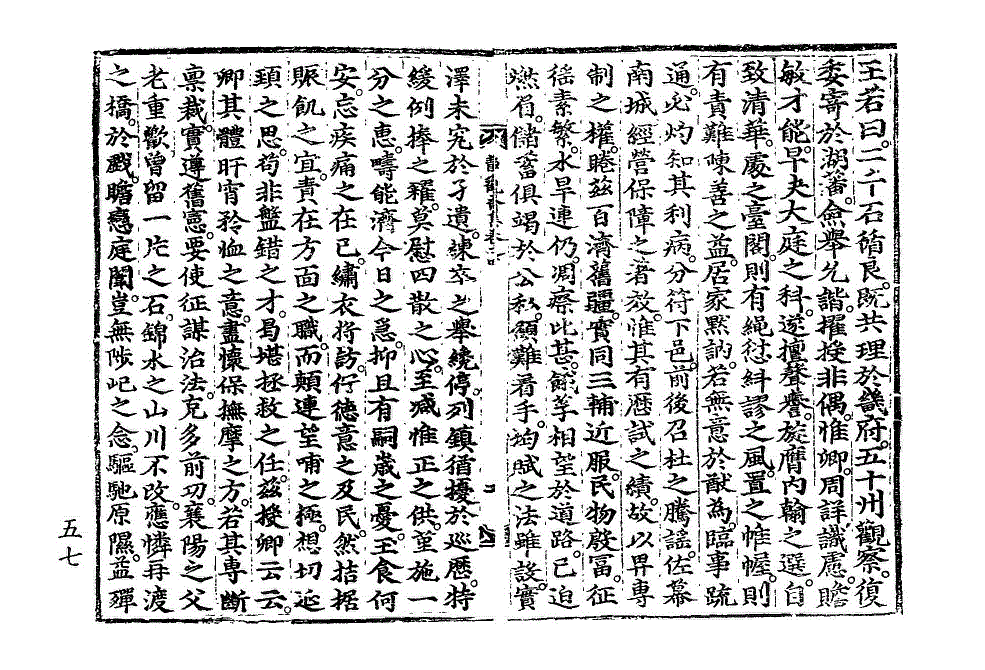 王若曰。二千石循良。旣共理於畿府。五十州觀察。復
委寄於湖藩。僉擧允諧。擢授非偶。惟卿。周詳識慮。贍
敏才能。早夬大庭之科。遂擅聲譽。旋膺內翰之選。自
致淸華。處之臺閣。則有繩愆糾謬之風。置之帷幄。則
有責難陳善之益。居家默訥。若無意於猷爲。臨事疏
通。必灼知其利病。分符下邑。前後召杜之騰謠。佐幕
南城。經營保障之著效。惟其有歷試之績。故以畀專
制之權。睠玆百濟舊疆。實同三輔近服。民物殷富。征
徭素繁。水旱連仍。凋瘵此甚。餓莩相望於道路。已迫
燃眉。儲蓄俱竭於公私。顧難着手。均賦之法雖設。實
澤未究於孑遺。竦
之擧纔停。列鎭猶擾於巡歷。特
緩例捧之糴。莫慰四散之心。至減惟正之供。菫施一
分之惠。疇能濟今日之急。抑且有嗣歲之憂。玉食何
安。忘疾痛之在己。繡衣將訪。佇德意之及民。然拮据
賑飢之宜。責在方面之職。而顚連望哺之極。想切延
頸之思。苟非盤錯之才。曷堪拯救之任。玆授卿云云。
卿其體旰宵矜恤之意。盡懷保撫摩之方。若其專斷
稟裁。實遵舊憲。要使征謀治法。克多前功。襄陽之父
老重歡。曾留一片之石。錦水之山川不改。應憐再渡
之橋。於戱。瞻戀庭闈。豈無陟屺之念。驅馳原隰。益殫
五七